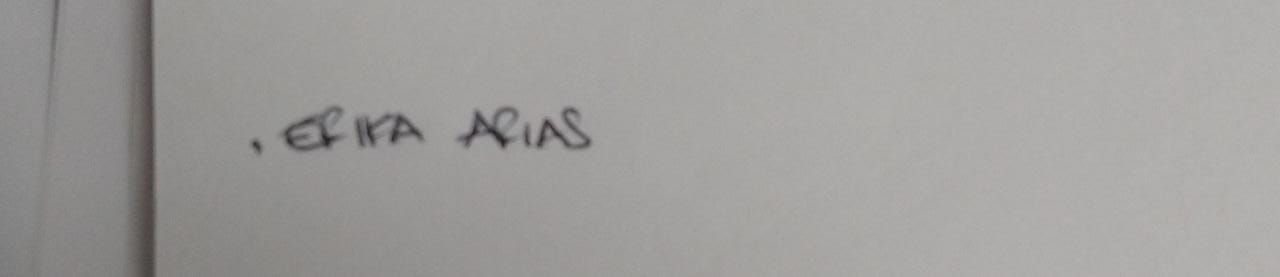 . ERIKA ARIAS